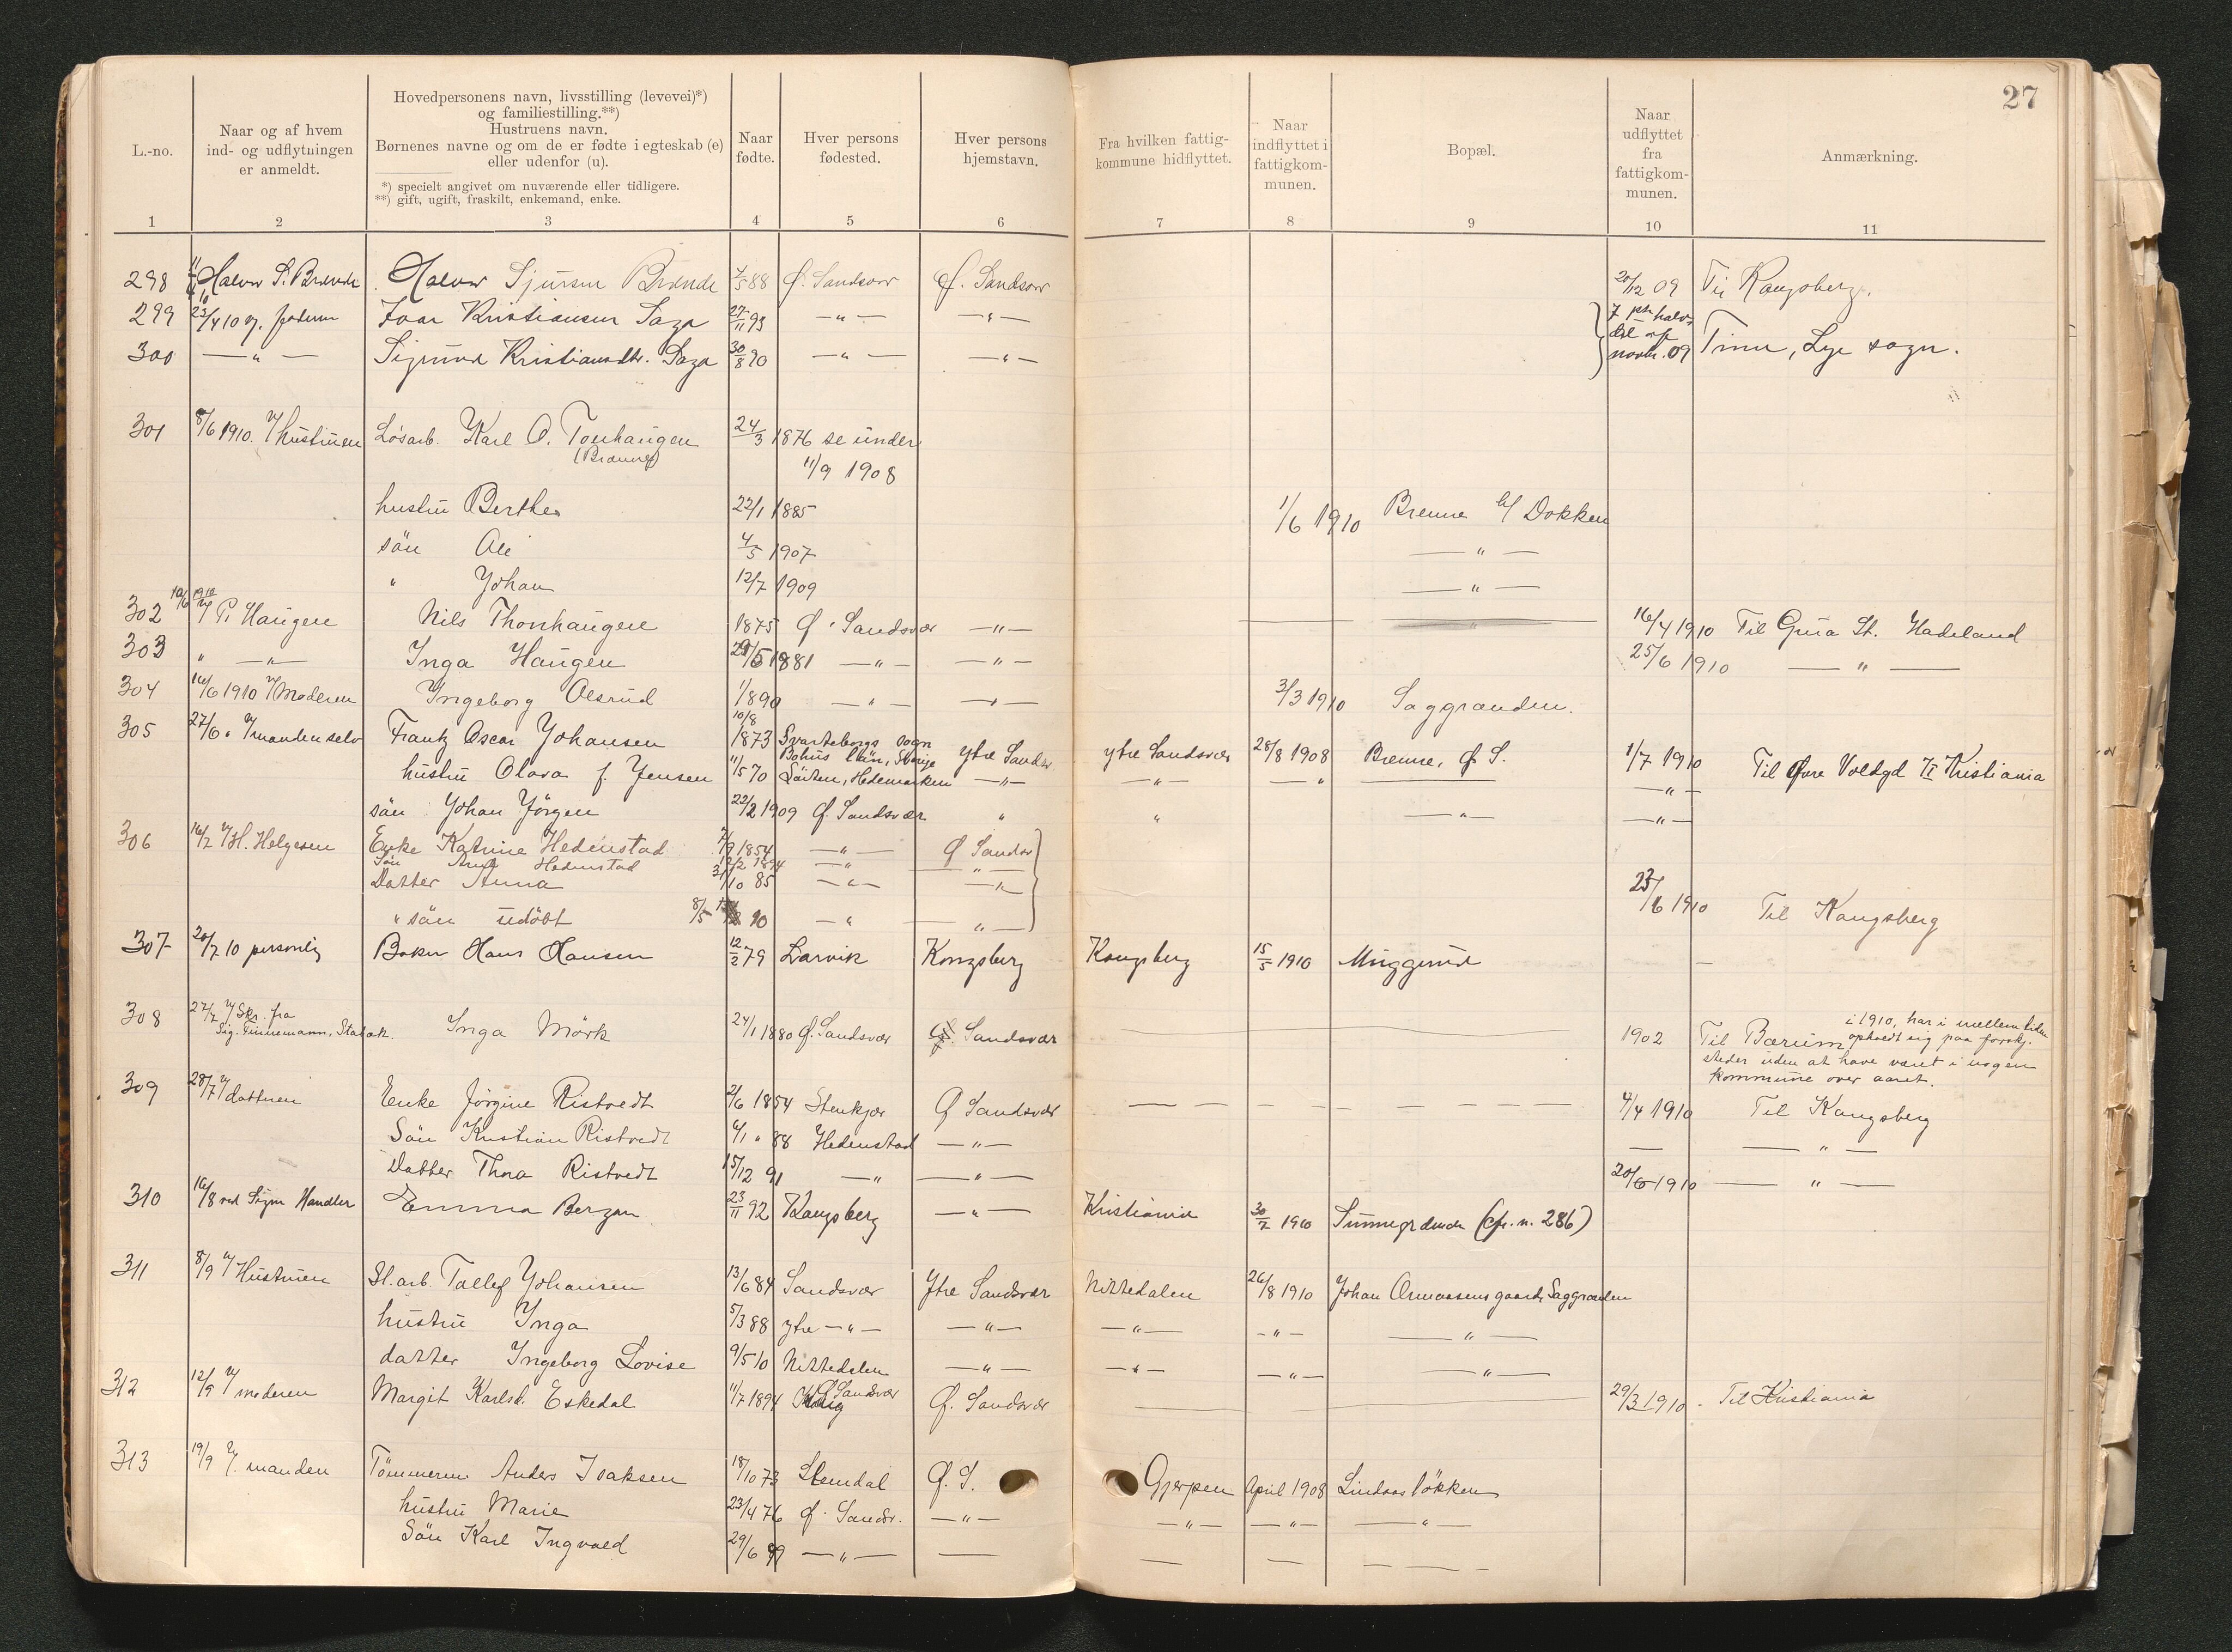 27
L.-no.
Naar og af hvem
ind- og udflytningen
er anmeldt.
Hovedpersonens navn, livsstilling (levevei)*)
og familiestilling.**)
Hustruens navn.
Børnenes navne og om de er fødte i egteskab (e)
eller udenfor (u).
*) specielt angivet om nuværende eller tidligere.
**) gift, ugift, fraskilt, enkemand, enke.
Naar
fødte.
Hver persons
fødested.
Hver persons
hjemstavn.
Fra hvilken fattig-
kommune hidflyttet.
Naar
indflyttet i
fattigkom-
munen.
Bopæl.
Naar
udflyttet
fra
fattigkom-
munen.
Anmærkning.
1 2 3 4 5 6 7 8 9 10 11
298 Halvor S. Brænde Halvor Sjursen Brænde 88 Ø. Sandsvær Ø. Sandsvær 20/12 09 Til Kongsberg.
299 23/4 10 v. faderen Ivar Kristiansen Saga 27/11 93 —"— —"— novbr. 09 Time, Lye sogn.
300 —"— Sigrund Kristiansdtr. Saga 30/8 90 —"— —"—
301 8/6 1910. v/ hustruen Løsarb. Karl O. Tonhaugen 24/3 1876 se under
(Brænne) 11/9 1908
hustru Berthe 22/1 1885 1/6 1910 Brenne v/ Dokken
sön Ole 4/5 1907 —"—
" Johan 12/7 1909 —"—
302 10/6 1910 v/ P. Haugen Nils Thonhaugen 1875 Ø. Sandsvær —"— 16/4 1910 Til Grua St. Hadeland
303 " —"— Inga Haugen 29/5 1881 —"— —"— 25/6 1910 —"—
304 16/6 1910 v/ Moderen Ingeborg Olsrud 1890 —"— —"— 3/3 1910 Saggranden.
305 27/6 " v/ manden selv Frantz Oscar Johansen 10/8 1873 Svarteborgs sogn
Bohus län, Sverige ytre Sandsv. ytre Sandsvær 28/8 1908 Brenne, Ø S. 1/7 1910 Til Øvre Voldgd 7 Kristiania
hustru Olava f. Jensen 11/5 70 Löiten, Hedemarken —"— —"— —" —"—
sön Johan Jörgen 22/2 1909 Ø. Sandsvær " " —"— —"—
306 16/7 v/ H. Helgesen Enke Katrine Hedenstad 7/9 1854 —"— Ø Sandsv
Sön Hedenstad 12/2 1894 —"— —"—
Datter Anna 31/10 85 —"— —"— 23/6 1910 Til Kongsberg
" sön udöbt 8/5 10 —"— —"—
307 20/7 10 personlig Baker Hans Hansen 12/2 79 Larvik Kongsberg Kongsberg 15/5 1910 Muggerud —
308 27/7 v/ Skr. fra
Sig. Finnemann, Stabæk. Inga Mörk 24/1 1880 Ø. Sandsvær Ø. Sandsvær 1902 Til Bærum i 1910, har i mellemtiden
opholdt sig paa forskj.
steder uden at have været i nogen
kommune over aaret.
309 28/7 v/ datteren Enke Jörgine Ristvedt 2/6 1854 Stenkjær Ø Sandsvær 4/4 1910 Til Kongsberg
Sön Kristian Ristvedt 6/1 " 88 Hedenstad —"— — —"—
Datter Thora Ristvedt 15/12 91 —"— —"— 20/6 1910 —"—
310 16/8 ved Sigm Handler Emma Bergan 23/11 92 Kongsberg —"— Kristiania 30/7 1910 (cfr. n. 286)
311 8/9 v/ Hustruen St. arb. Tallef Johansen 13/6 84 Sandsvær Ytre Sandsvær Nittedalen 26/8 1910 Johan Asmaasens gaard, Saggranden
hustru Inga 5/3 88 ytre —"— —"— —"— —"— —"—
datter Ingeborg Lovise 9/5 10 Nittedalen —"— —"— —"— —"—
312 12/9 v/ moderen Margit Karlsd. Eskedal 11/7 1894 Ø Sandsvær Ø. Sandsvær 29/3 1910. Til Kristiania
313 19/9 v/. manden Tömmerm. Anders Isaksen 18/10 73 Slemdal Ø. S. Gjerpen April 1908 Lindaas lökken
hustru Marie 23/4 76 Ø. Sandsv. —"— —"— —"— —"—
Sön Karl Ingvald 29/6 99 —"— — — — —